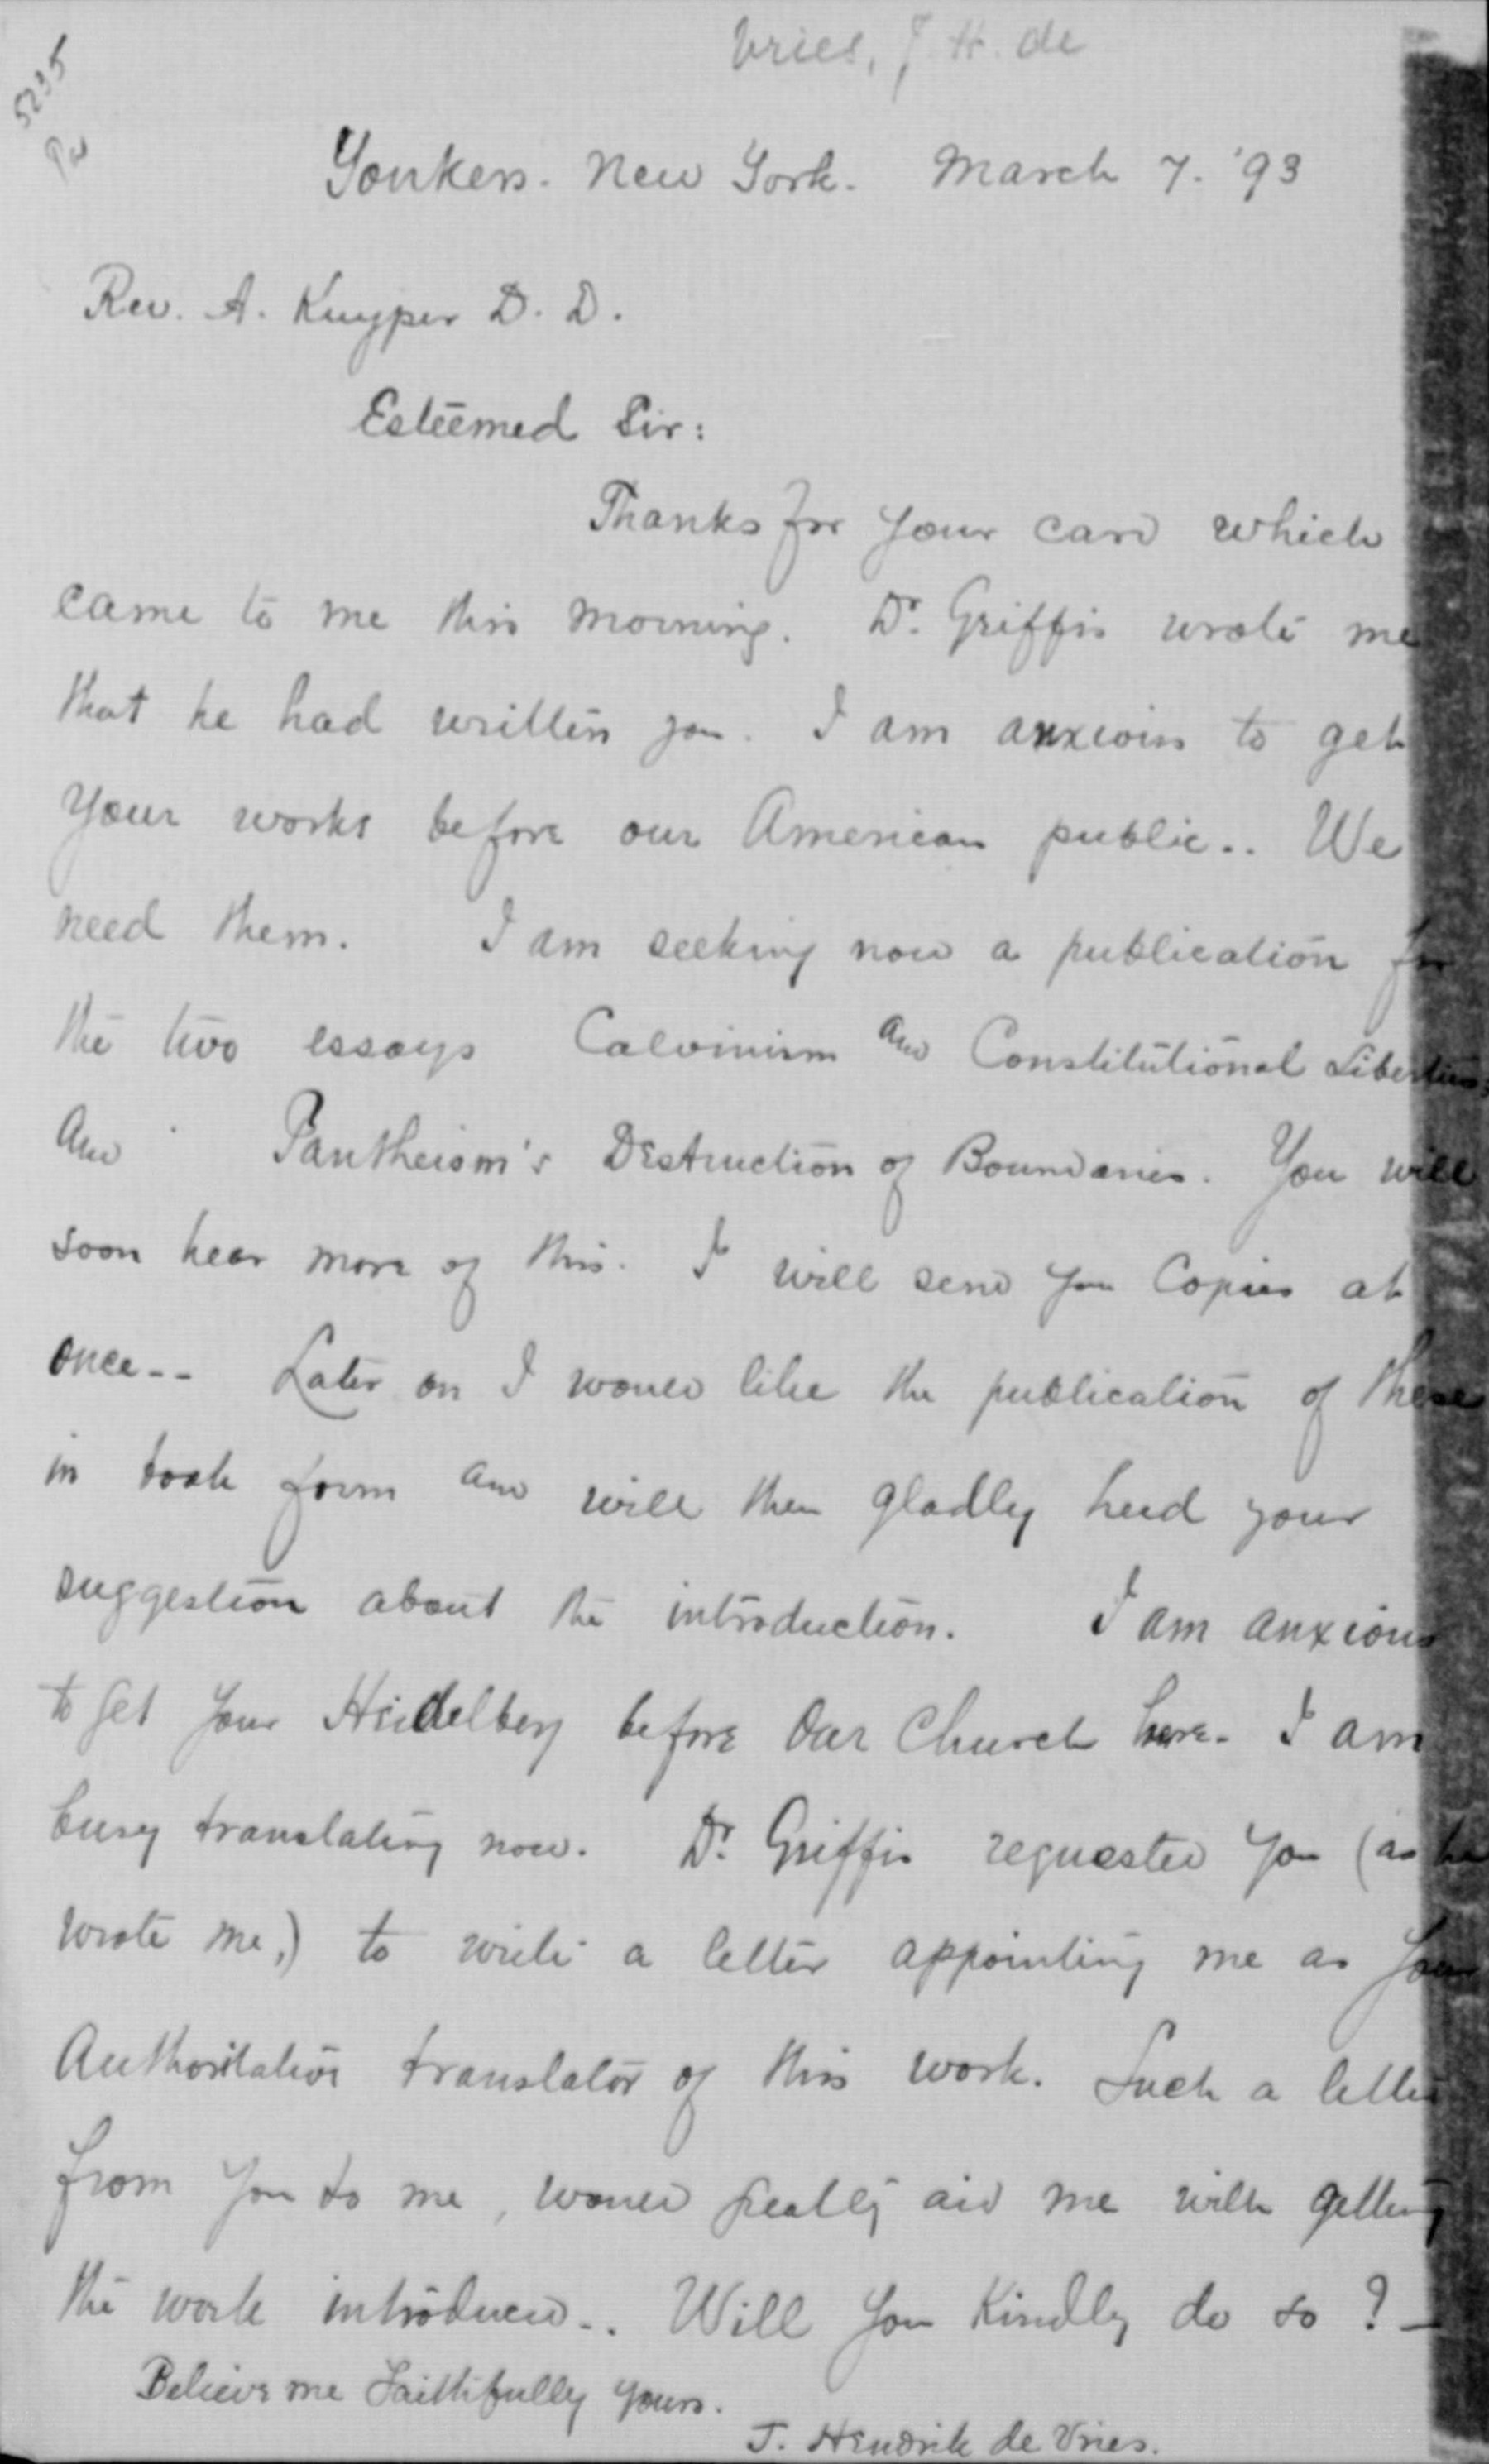 Vries, J. H. de
5235
Yonkers. New York. March 7. '93
Rev. A. Kuyper D. D.
Esteemed Sir:
Thanks for your card which
came to me this morning. Dr. Griffis wrote me
that he had written you. I am anxious to get
your works before our American public.. We
need them. I am seeking now a publication for
the two essays Calvinism and Constitutional Liberties;
and Pantheism's Destruction of Boundaries. You will
soon hear more of this. I will send you Copies at
once-- Later on I would like the publication of these
in book form and will then gladly heed your
suggestion about the introduction. I am anxious
to get your Heidelberg before Our Church here. I am
busy translating now. Dr. Griffis requested you (as he
wrote me,) to write a letter appointing me as your
Authoritative translator of this work. Such a letter
from you to me, would greatly aid me with getting
the work introduced.. Will you Kindly do so? —
Believe me Faithfully yours.
J. Hendrik de Vries.